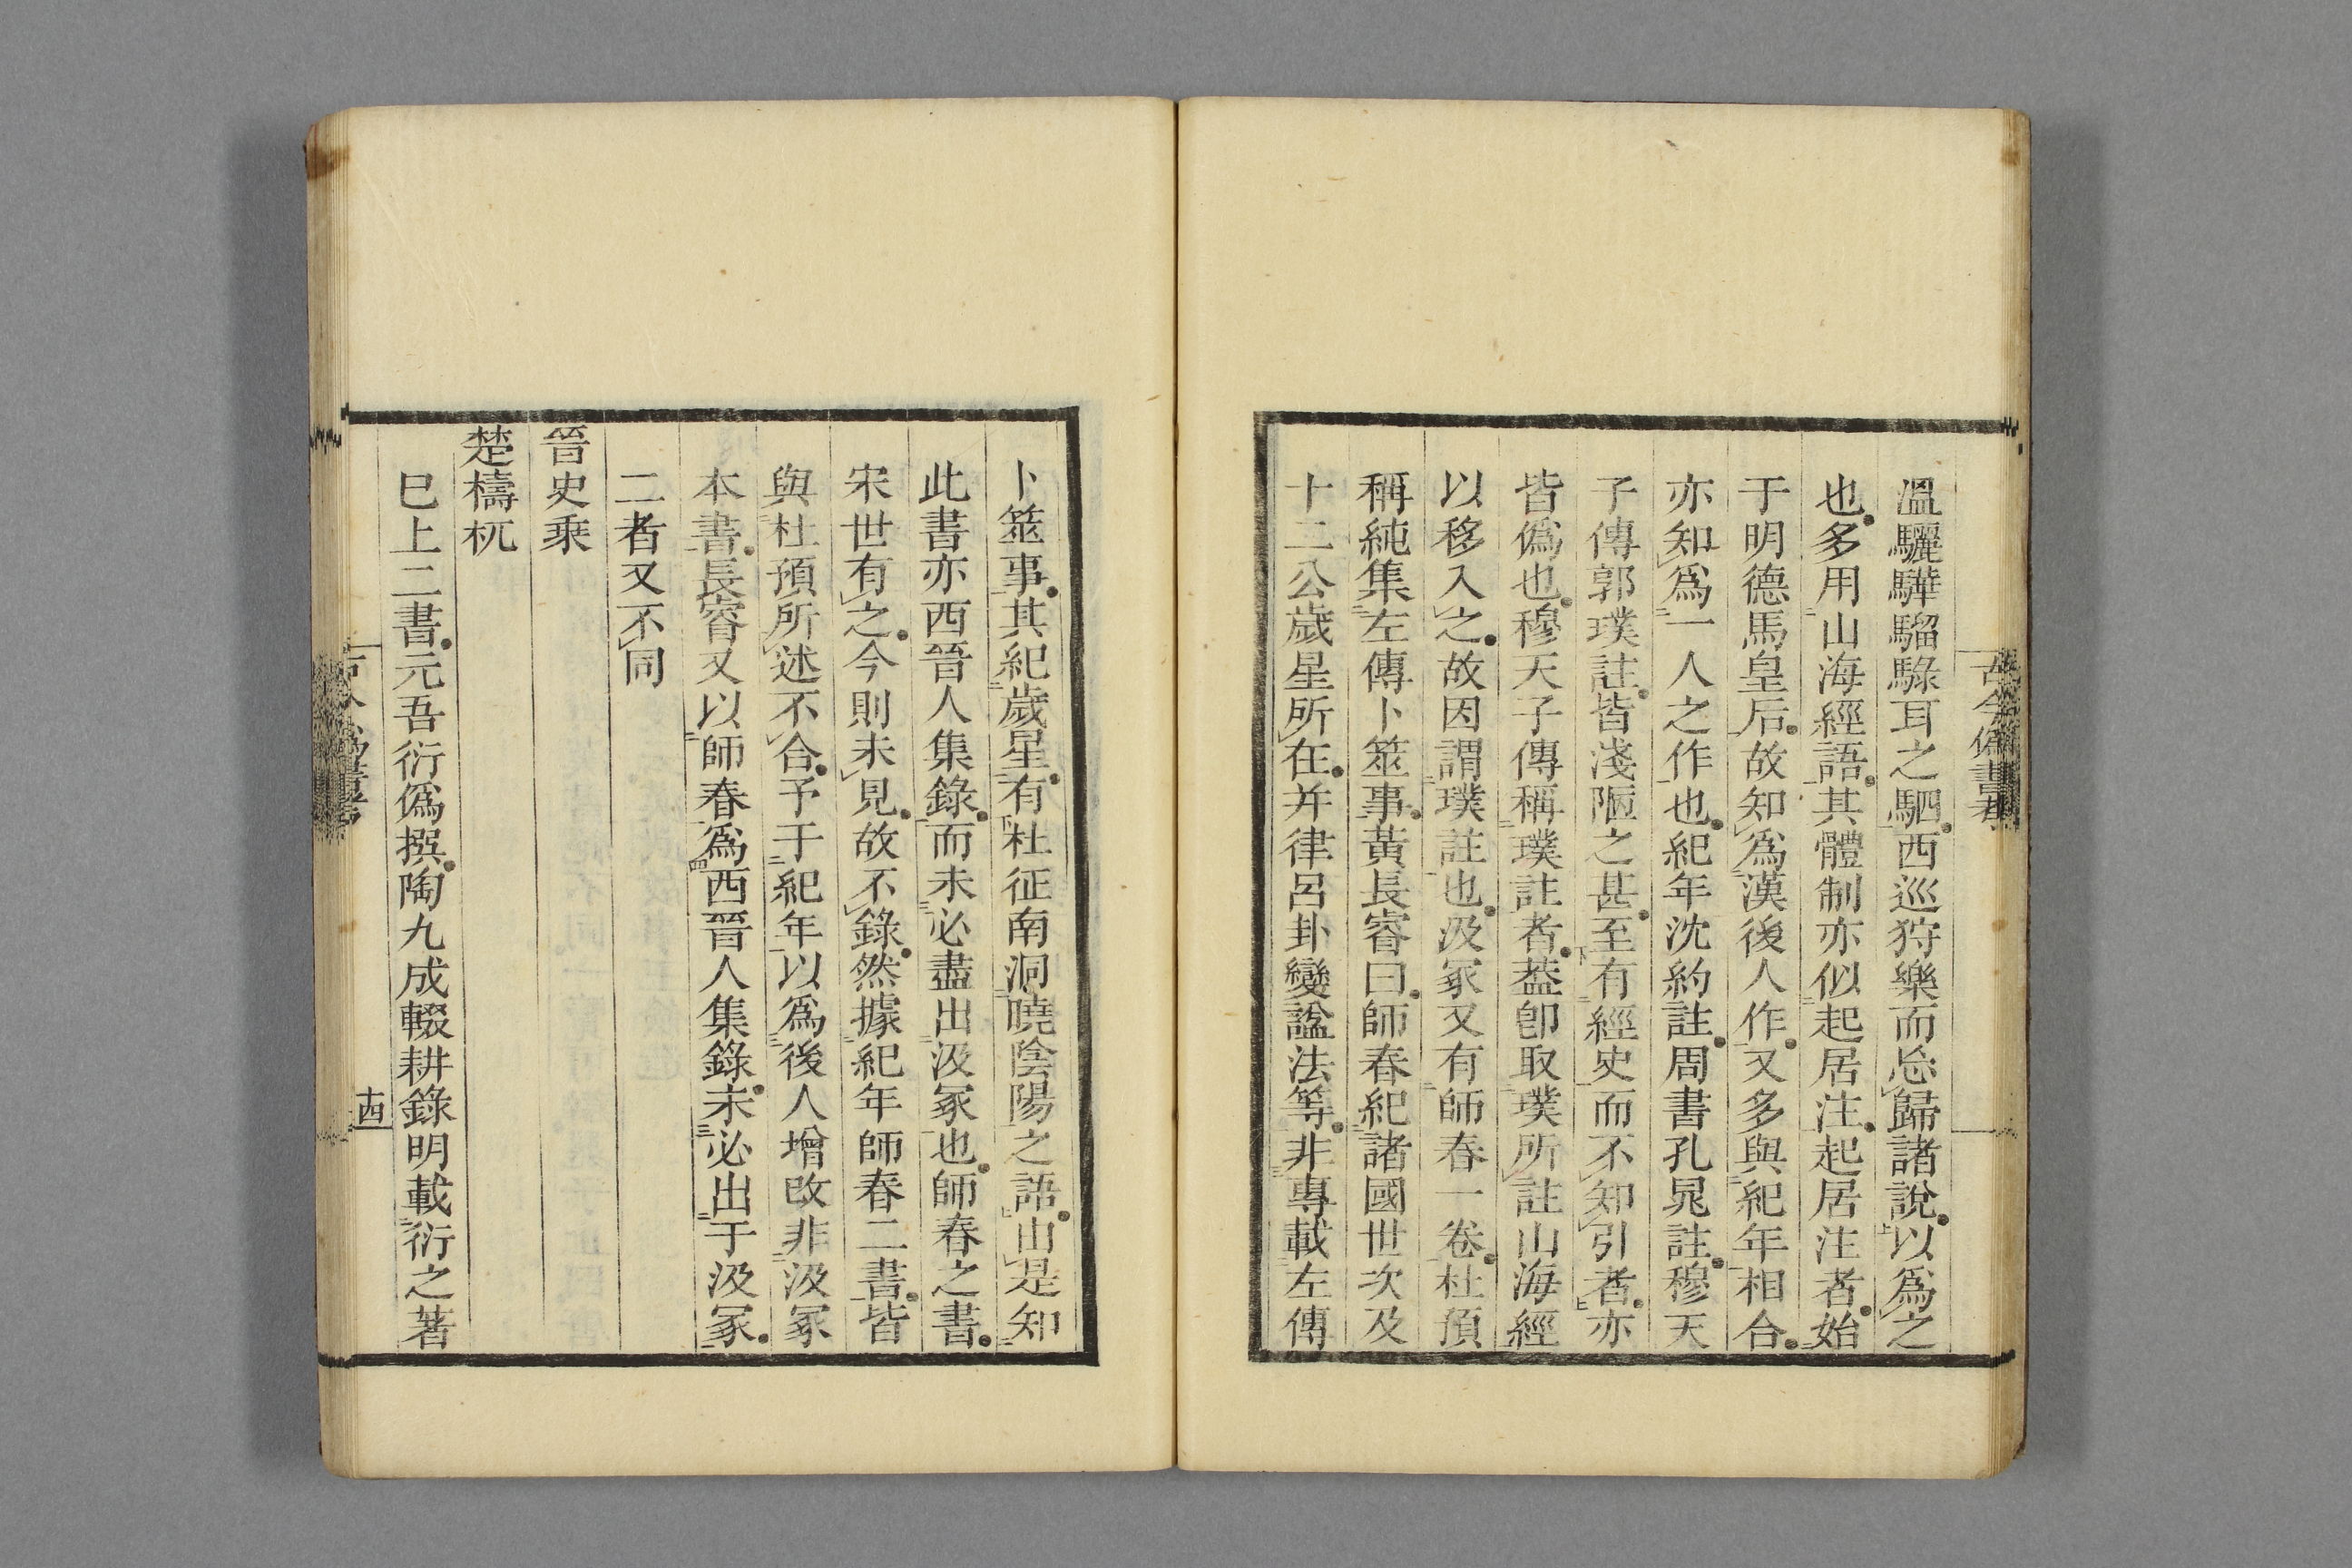 古今僞書考
溫驪驊騮騄耳之駟西巡狩樂而忘歸諸說以爲之
也多用山海經語其體制亦似起居注起居注者始
于明德馬皇后故知爲漢後人作又多與紀年相合
亦知爲一人之作也紀年沈約註周書孔晁註穆天
子傳郭璞註皆淺陋之甚至有經史而不知引者亦
皆僞也穆天子傳稱璞註者葢卽取璞所註山海經
以移入之故因謂璞註也汲冢又有師春一卷杜預
稱純集左傳卜筮事黃長睿曰師春紀諸國世次及
十二公歲星所在并律呂卦變諡法等非專載左傳
卜筮事其紀歲星有杜征南洞曉陰陽之語由是知
此書亦西晉人集錄而未必盡出汲冢也師春之書
宋世有之今則未見故不錄然據紀年師春二書皆
與杜預所述不合予于紀年以爲後人增改非汲冢
本書長睿又以師春爲西晉人集錄未必出于汲冢
二者又不同
晉史乘
楚檮杌
已上二書元吾衍僞撰陶九成輟耕錄明載衍之著
十四